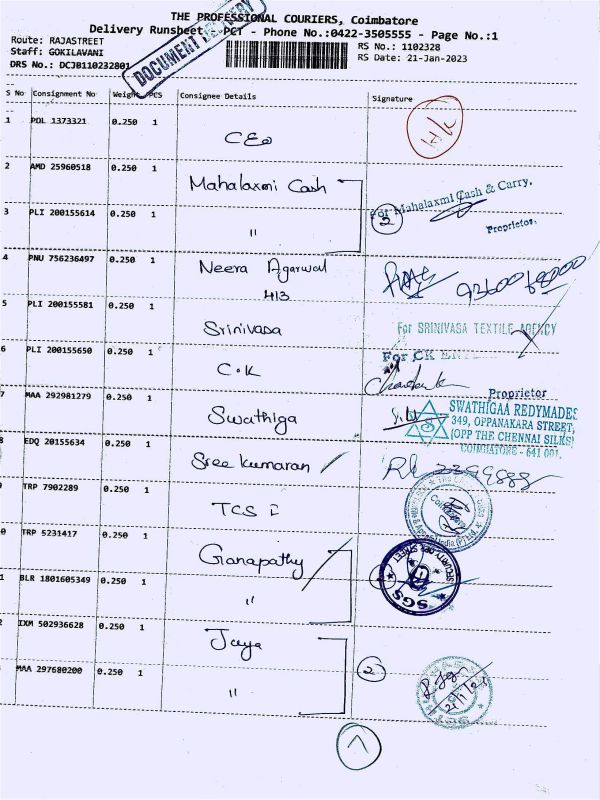 THE PROFESSIONAL COURIERS, Coimbatore
Delivery Runsheet - PCT - Phone No.:0422-3505555 - Page No.:1
Route: RAJASTREET
Staff: GOKILAVANI
DRS No.: DCJB110232801
DOCUMENT DELIVERY
RS No.: 1102328
RS Date: 21-Jan-2023
S No Consignment No Weight PCS Consignee Details Signature
1 POL 1373321 0.250 1 CEO
2 AMD 25960518 0.250 1 Mahalaxmi Cash
For Mahalaxmi Cash & Carry.
2
Proprietor.
3 PLI 200155614 0.250 1 "
4 PNU 756236497 0.250 1 Neera Agarwal
413
5 PLI 200155581 0.250 1 Srinivasa
For SRINIVASA TEXTILE AGENCY
6 PLI 200155650 0.250 1 C.K
For CK
Proprietor
7 MAA 292981279 0.250 1 Swathiga
SWATHIGAA REDYMADES
349, OPPANAKARA STREET,
(OPP THE CHENNAI SILKS)
COIMBATORE - 641 001.
8 EDQ 20155634 0.250 1 Sree kumaran
9 TRP 7902289 0.250 1 TCS
0 TRP 5231417 0.250 1 Ganapathy
SECURITY OPP STREET
SGS
1 BLR 1801605349 0.250 1 "
2 IXM 502936628 0.250 1 Jaya
2
21/1/23
MAA 297680200 0.250 1 "